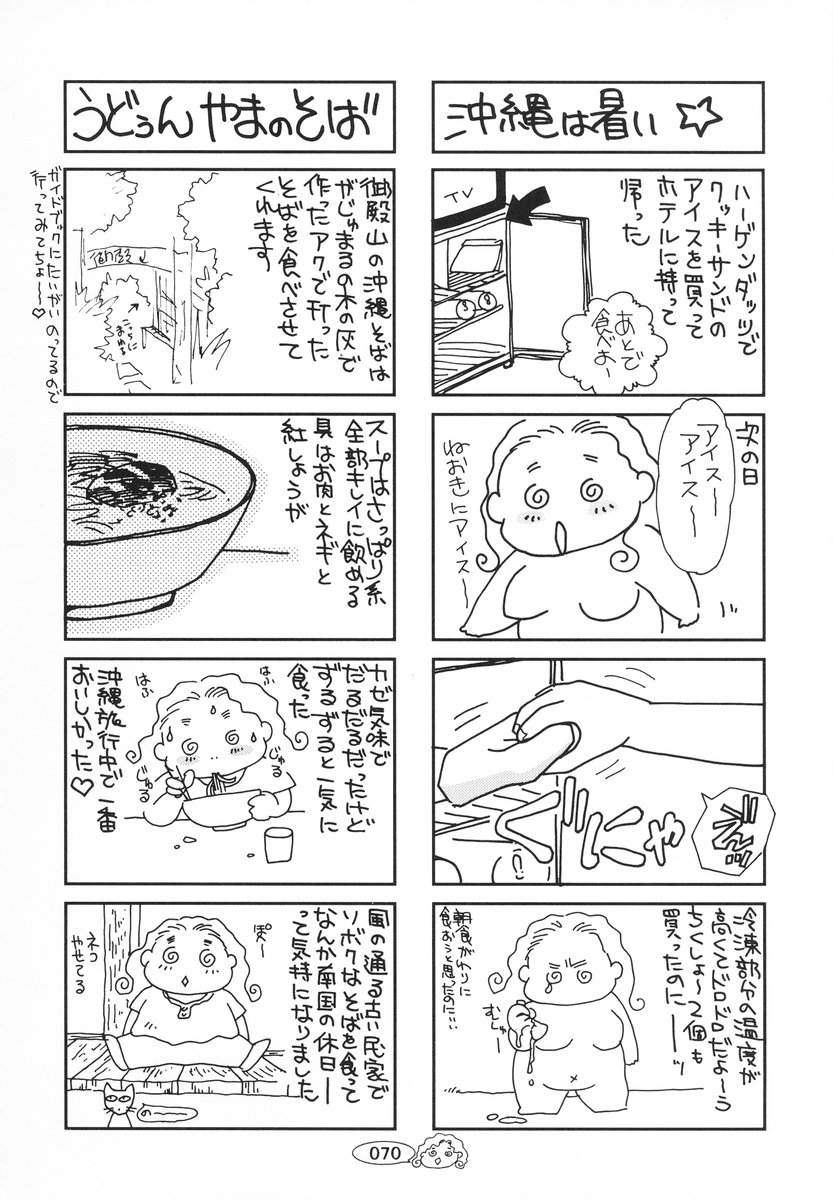 沖縄は暑い☆
ハーゲンダッツで
クッキーサンドの
アイスを買って
ホテルに持って
帰った
TV
あとで
食べよー
次の日
アイス〜
アイス〜
ねおきにアイス〜
ぐにゃ
冷凍部分の温度が
高くてドロドロだよ〜う
ちくしょ〜2個も
買ったのにーッ
むしゅー
朝食がわりに
食おうと思ったのに…
うどぅんやまのそば
御殿山の沖縄そばは
がじゅまるの木の灰で
作ったアクで打った
そばを食べさせて
くれます
こちらに
まがる
ガイドブックにたいがいのってるので
行ってみてちょ〜〜♡
スープはさっぱり系
全部キレイに飲める
具はお肉とネギと
紅しょうが
カゼ気味で
だるだるだったけど
ずるずると一気に
食った
はふ
はふ
じゅる
じゅる
沖縄旅行中で一番
おいしかった♡
風の通る古い民家で
ソボクなそばを食って
なんか南国の休日ー
って気持になりました
ぽ〜
ネコ
やせてる
のー
070